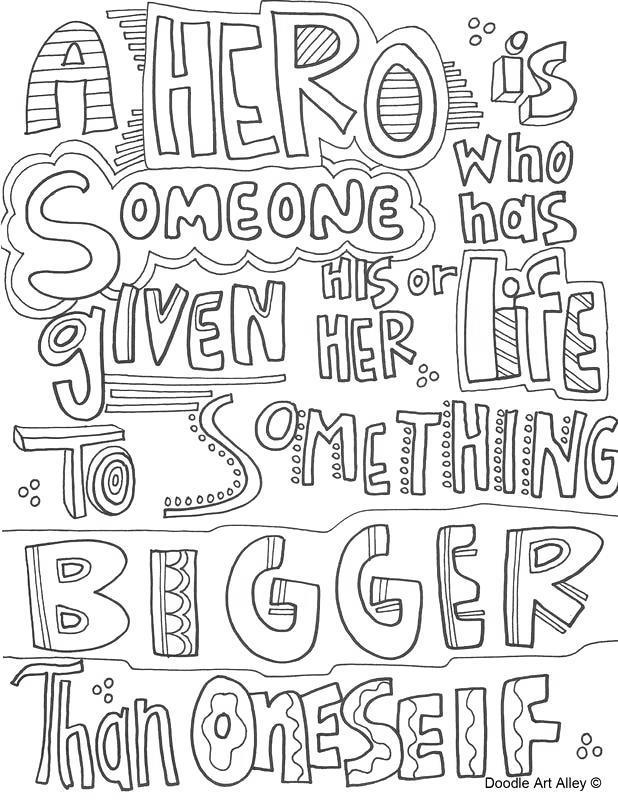 A HERO is
SOMEONE who has
given HIS or HER Life
TO SOMETHING
BIGGER
Than ONESElF
Doodle Art Alley ©